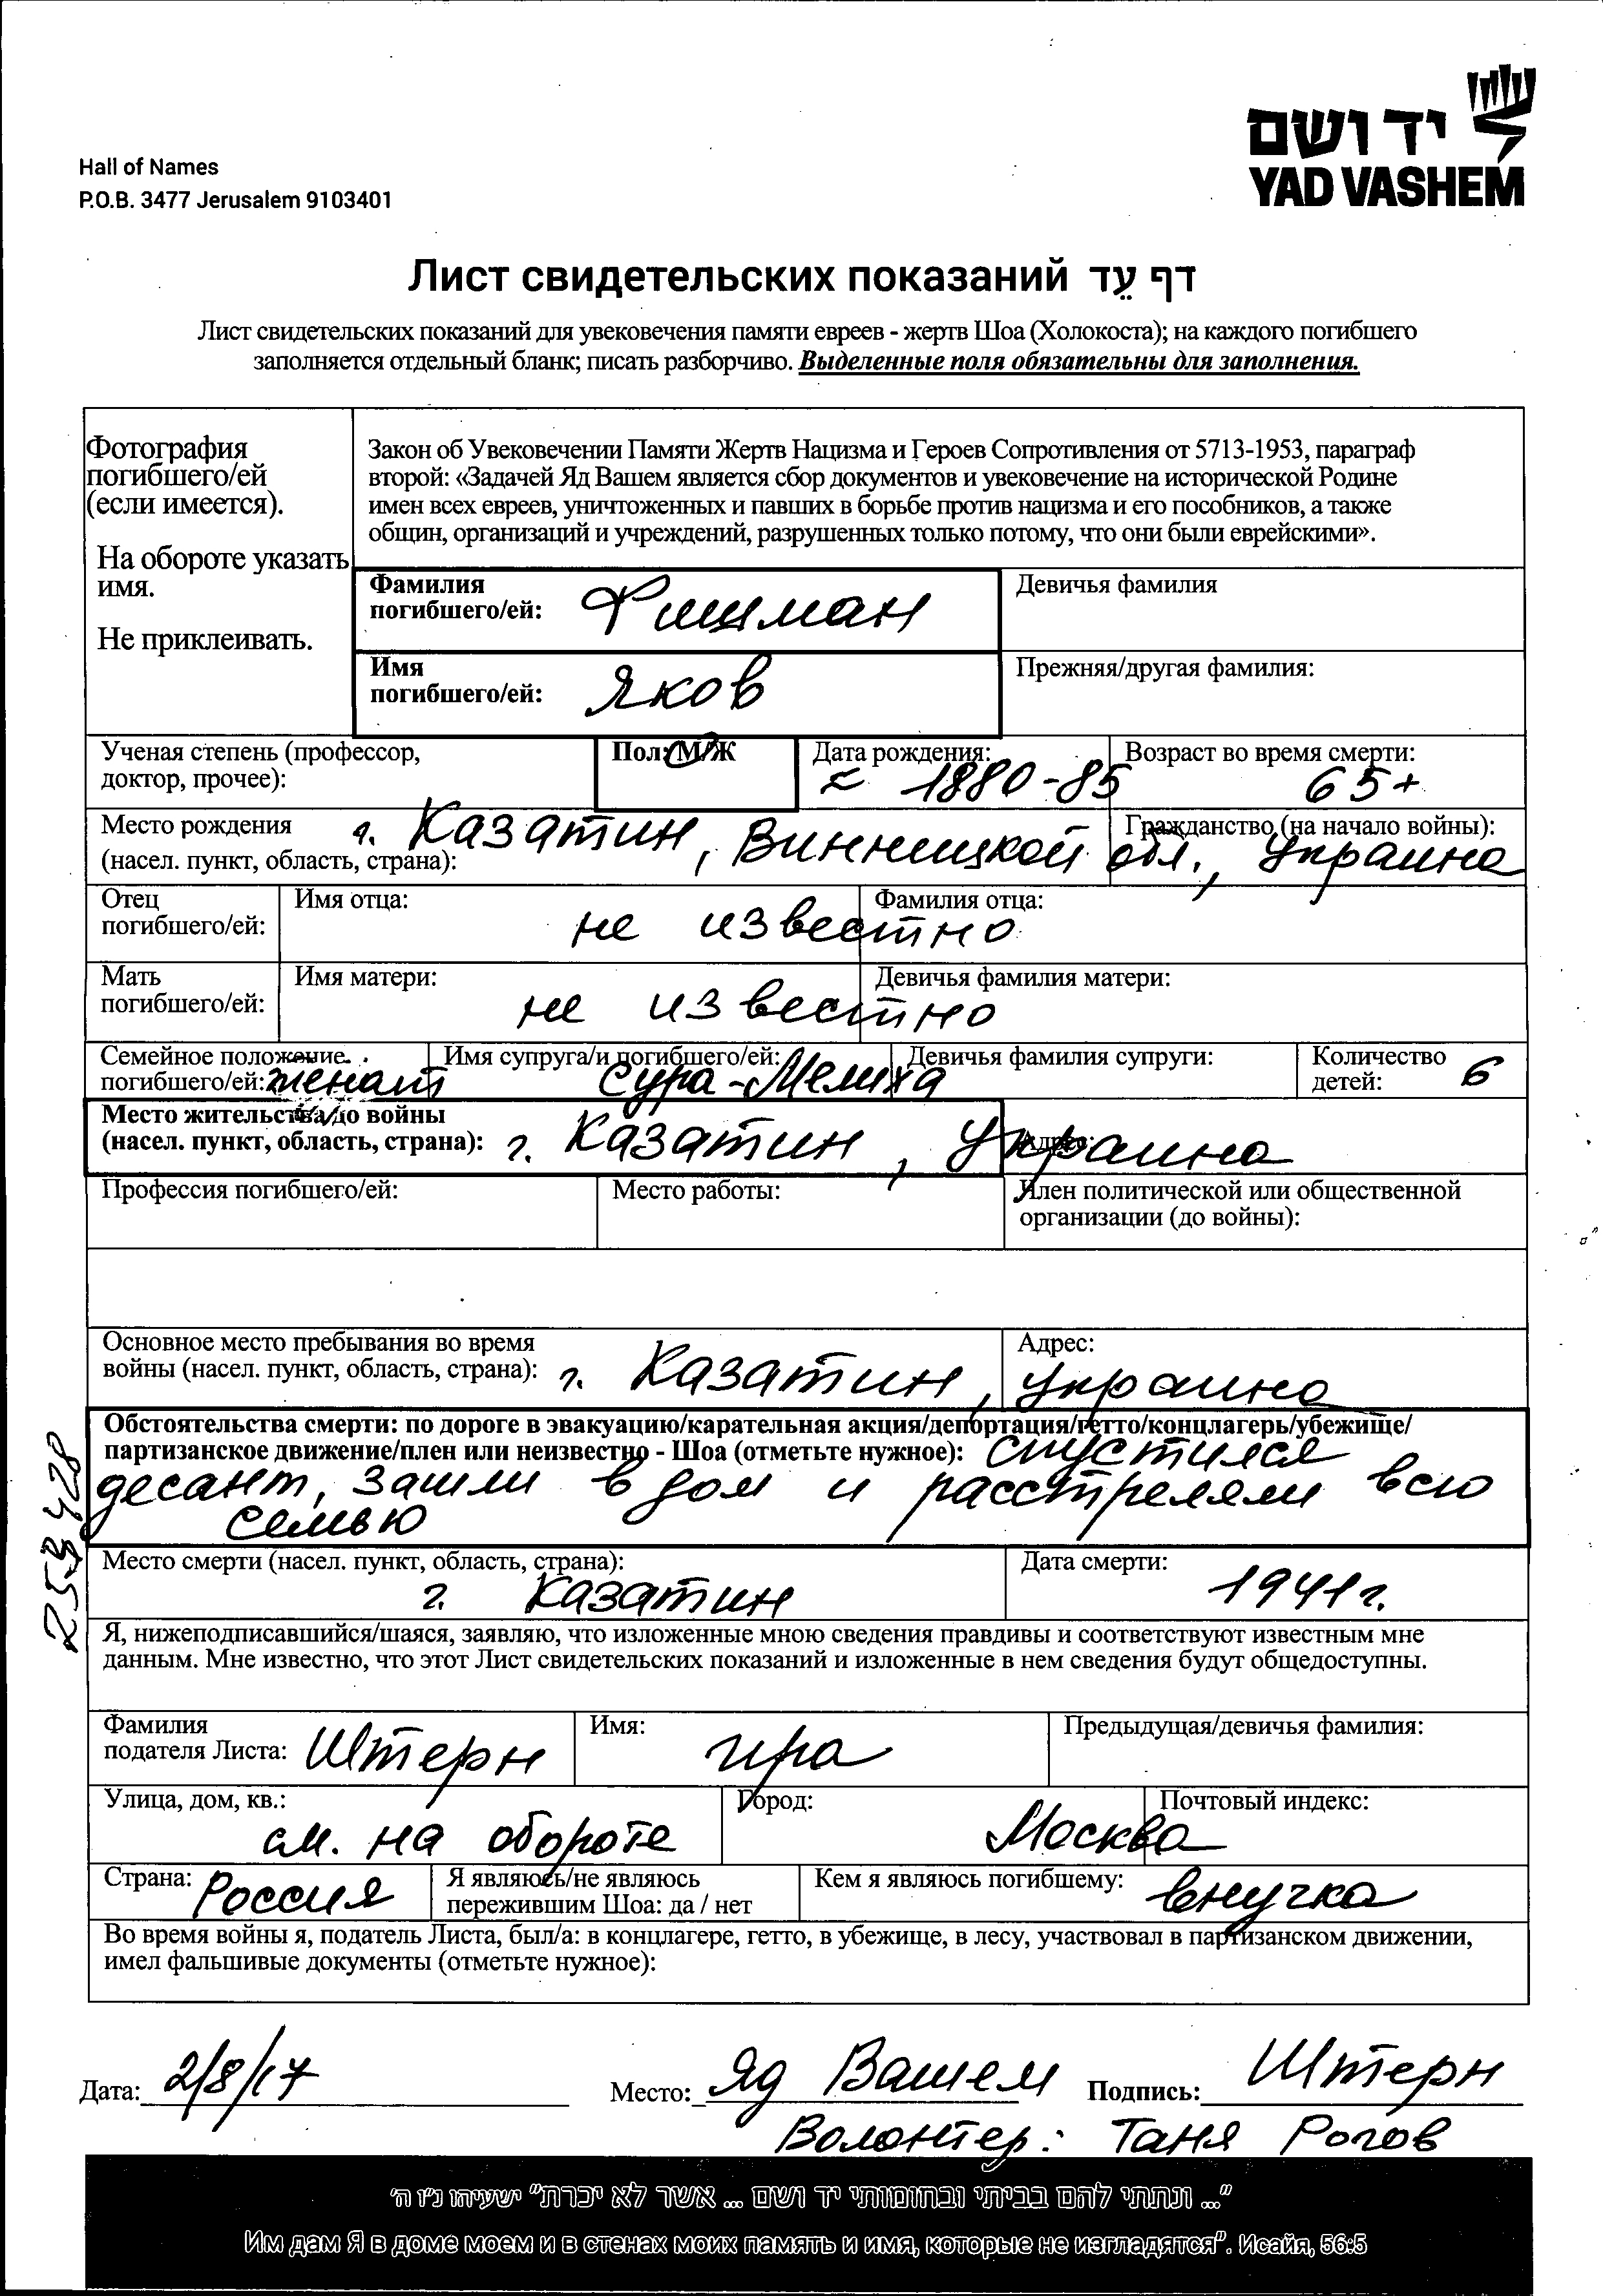 יד ושם
YAD VASHEM
Hall of Names
P.O.B. 3477 Jerusalem 9103401
Лист свидетельских показаний דף עֵד
Лист свидетельских показаний для увековечения памяти евреев - жертв Шоа (Холокоста); на каждого погибшего
заполняется отдельный бланк; писать разборчиво. Выделенные поля обязательны для заполнения.
Фотография
погибшего/ей
(если имеется).
На обороте указать
имя.
Не приклеивать.
Закон об Увековечении Памяти Жертв Нацизма и Героев Сопротивления от 5713-1953, параграф
второй: «Задачей Яд Вашем является сбор документов и увековечение на исторической Родине
имен всех евреев, уничтоженных и павших в борьбе против нацизма и его пособников, а также
общин, организаций и учреждений, разрушенных только потому, что они были еврейскими».
Фамилия
погибшего/ей: Фишман
Девичья фамилия
Имя
погибшего/ей: Яков
Прежняя/другая фамилия:
Ученая степень (профессор,
доктор, прочее):
Пол: М/Ж
Дата рождения:
≈ 1880-85
Возраст во время смерти:
65+
Место рождения
(насел. пункт, область, страна): г. Казатин, Винницкой обл., Украина
Гражданство (на начало войны):
Отец
погибшего/ей:
Имя отца:
Фамилия отца:
не известно
Мать
погибшего/ей:
Имя матери:
Девичья фамилия матери:
не известно
Семейное положение
погибшего/ей: женат
Имя супруга/и погибшего/ей:
Сура-Мелиха
Девичья фамилия супруги:
Количество
детей: 6
Место жительства до войны
(насел. пункт, область, страна): г. Казатин, Украина
Адрес:
Профессия погибшего/ей:
Место работы:
Член политической или общественной
организации (до войны):
Основное место пребывания во время
войны (насел. пункт, область, страна): г. Казатин, Украина
Адрес:
Обстоятельства смерти: по дороге в эвакуацию/карательная акция/депортация/гетто/концлагерь/убежище/
партизанское движение/плен или неизвестно - Шоа (отметьте нужное): спустился
десант, зашли в дом и расстреляли всю
семью
Место смерти (насел. пункт, область, страна):
г. Казатин
Дата смерти:
1941г.
Я, нижеподписавшийся/шаяся, заявляю, что изложенные мною сведения правдивы и соответствуют известным мне
данным. Мне известно, что этот Лист свидетельских показаний и изложенные в нем сведения будут общедоступны.
Фамилия
подателя Листа: Штерн
Имя:
Ира
Предыдущая/девичья фамилия:
Улица, дом, кв.:
см. на обороте
Город:
Москва
Почтовый индекс:
Страна: Россия
Я являюсь/не являюсь
пережившим Шоа: да / нет
Кем я являюсь погибшему: внучка
Во время войны я, податель Листа, был/а: в концлагере, гетто, в убежище, в лесу, участвовал в партизанском движении,
имел фальшивые документы (отметьте нужное):
Дата: 2/8/17
Место: Яд Вашем
Подпись: Штерн
Волонтер: Таня Рогов
"... ונתתי להם בביתי ובחומותי יד ושם ... אשר לא יכרת" ישעיהו נ"ו ה'
Им дам Я в доме моем и в стенах моих память и имя, которые не изгладятся". Исайя, 56:5